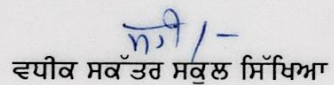 ਸਹੀ/-
ਵਧੀਕ ਸਕੱਤਰ ਸਕੂਲ ਸਿੱਖਿਆ